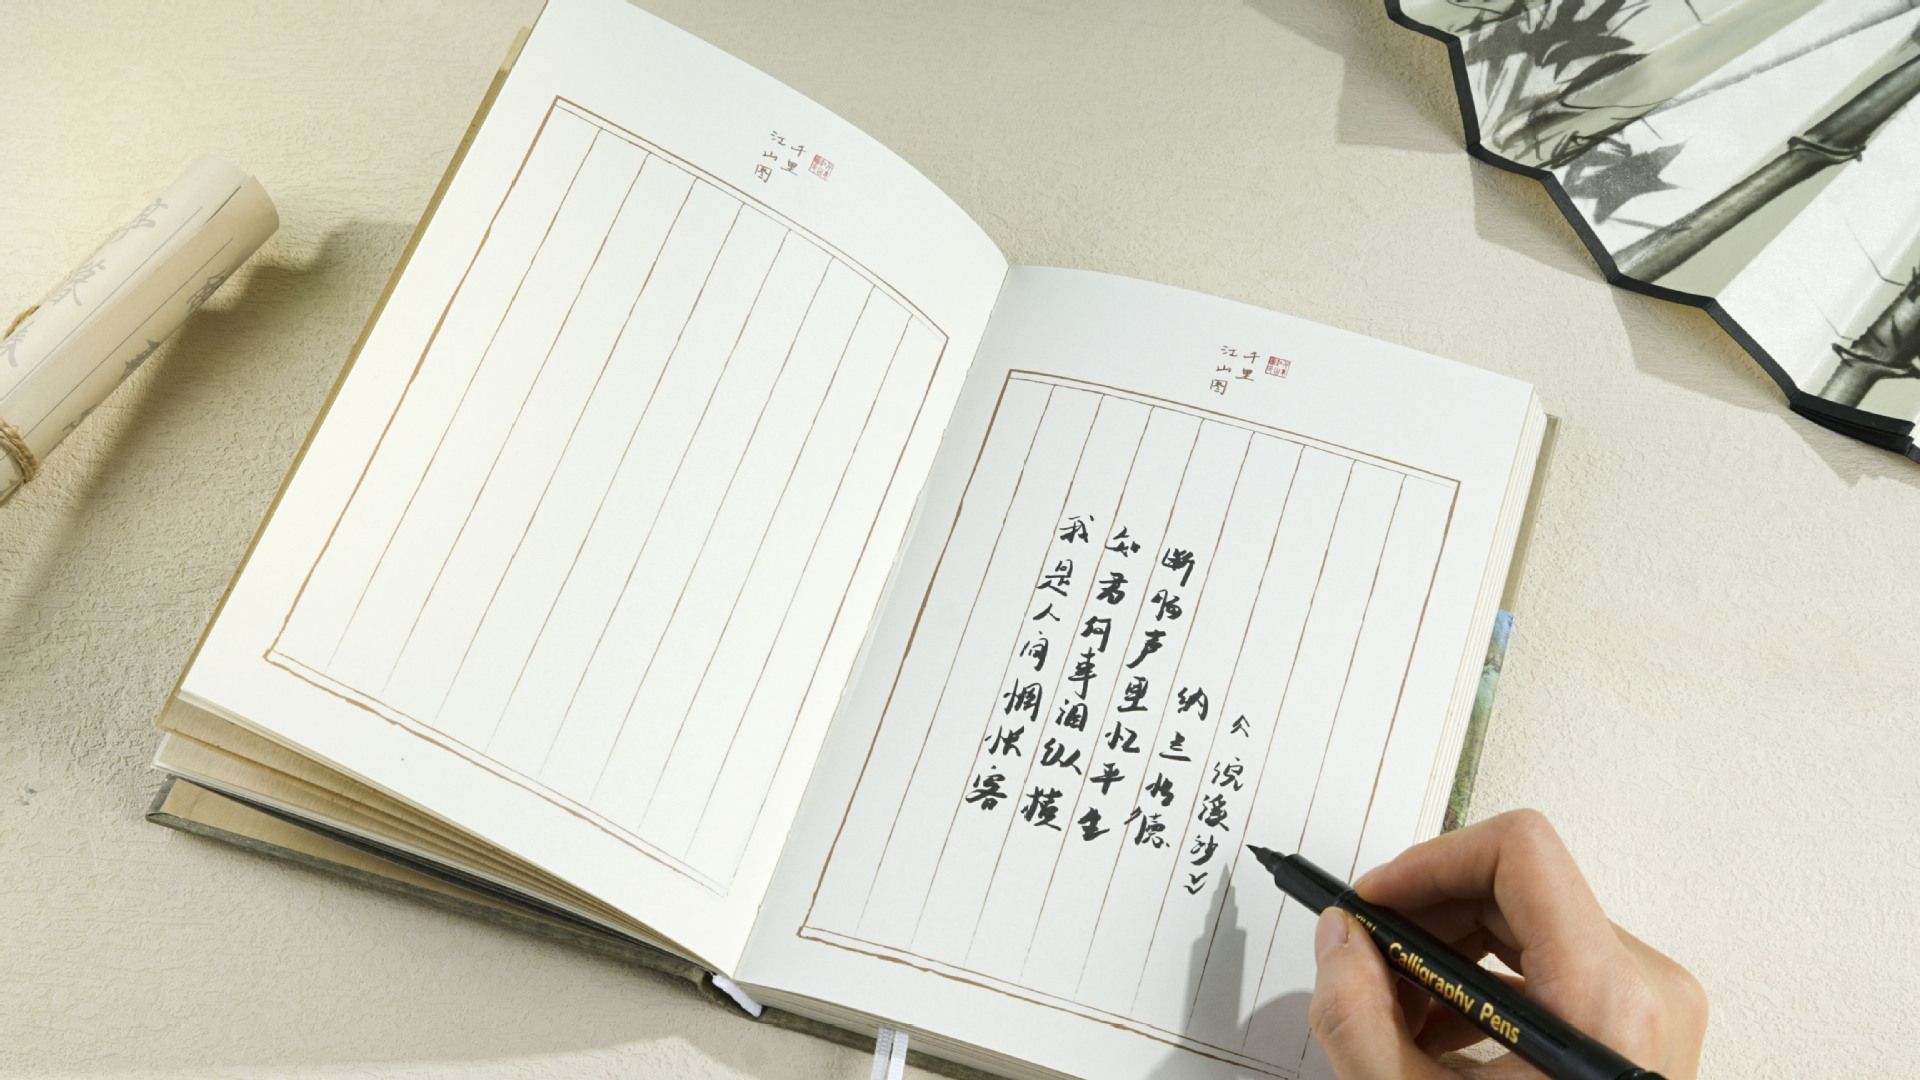 千里
江山图
千里
江山图
我是人间惆怅客
知君何事泪纵横
断肠声里忆平生
纳兰性德
《浣溪沙》
Calligraphy Pens